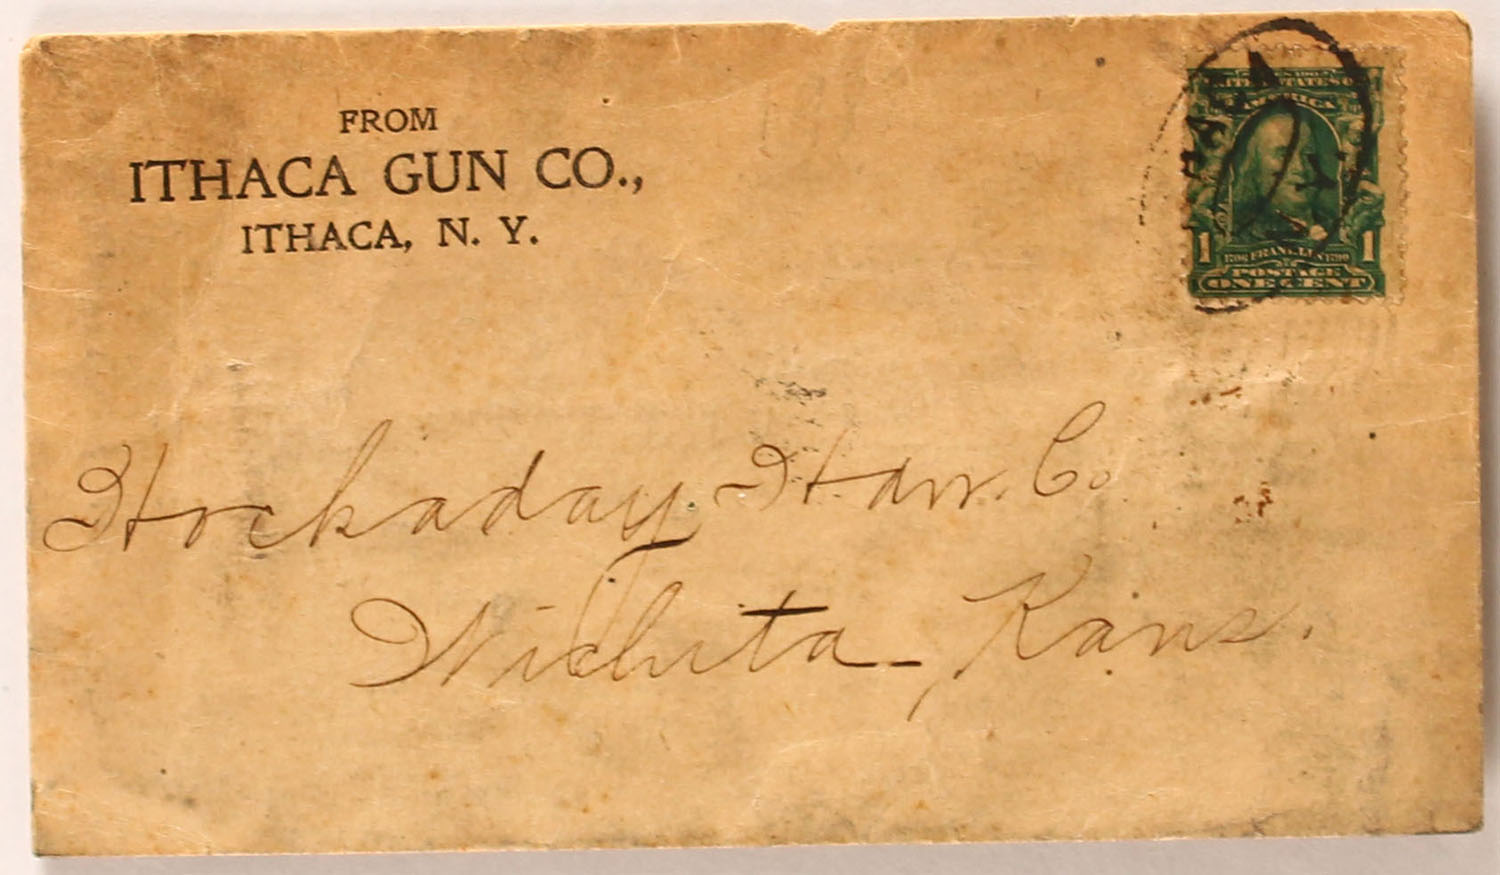 FROM
ITHACA GUN CO.,
ITHACA, N. Y.
UNITED STATES OF
AMERICA
1 1
FRANKLIN
POSTAGE
ONE CENT
Hockaday Hdw. Co.
Wichita, Kans.